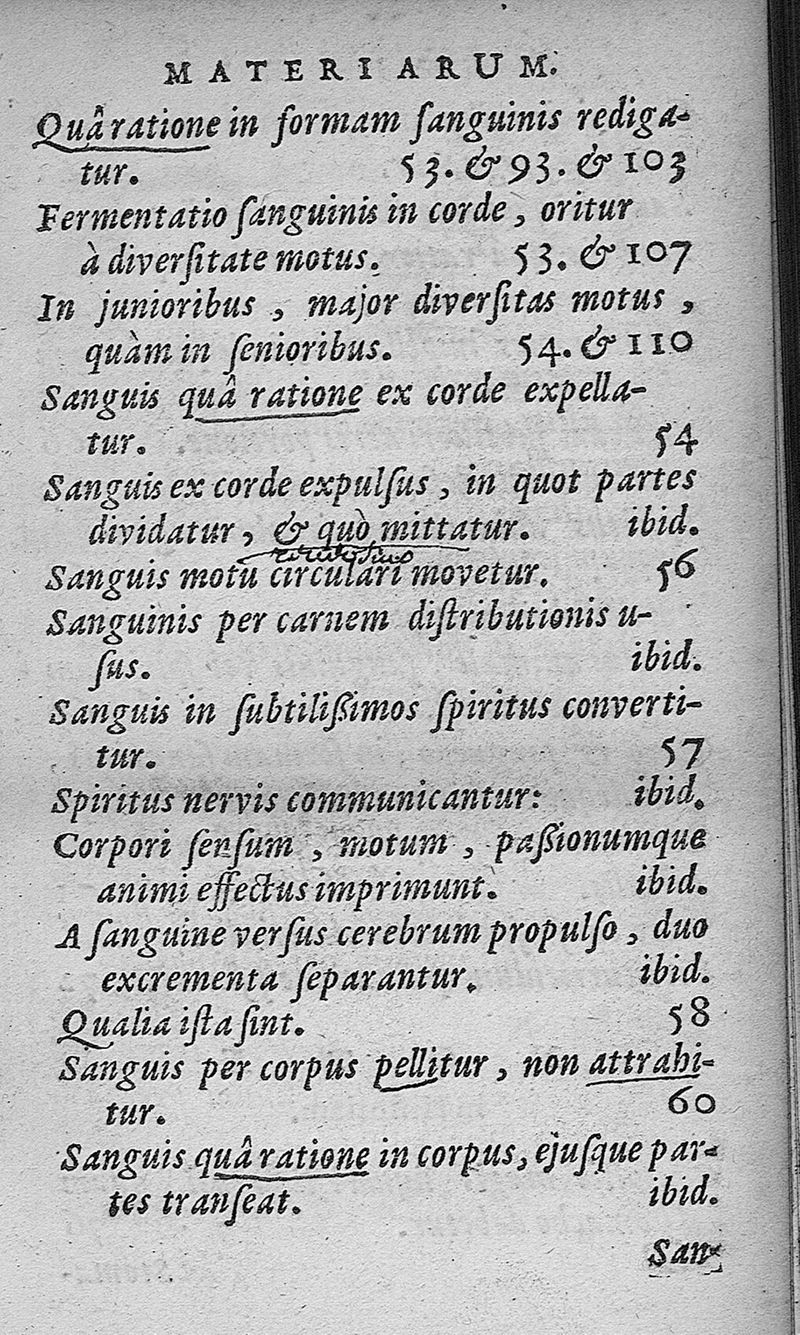 MATERIARUM.
Quâ ratione in formam ſanguinis rediga-
tur. 53. & 93. & 103
Fermentatio ſanguinis in corde, oritur
à diverſitate motus. 53. & 107
In junioribus, major diverſitas motus,
quàm in ſenioribus. 54. & 110
Sanguis quâ ratione ex corde expella-
tur. 54
Sanguis ex corde expulſus, in quot partes
dividatur, & quò mittatur. ibid.
Sanguis motu circulari movetur. 56
Sanguinis per carnem diſtributionis u-
ſus. ibid.
Sanguis in ſubtilißimos ſpiritus converti-
tur. 57
Spiritus nervis communicantur: ibid.
Corpori ſenſum, motum, paßionumque
animi effectus imprimunt. ibid.
A ſanguine verſus cerebrum propulſo, duo
excrementa ſeparantur. ibid.
Qualia iſta ſint. 58
Sanguis per corpus pellitur, non attrahi-
tur. 60
Sanguis quâ ratione in corpus, ejuſque par-
tes tranſeat. ibid.
San-